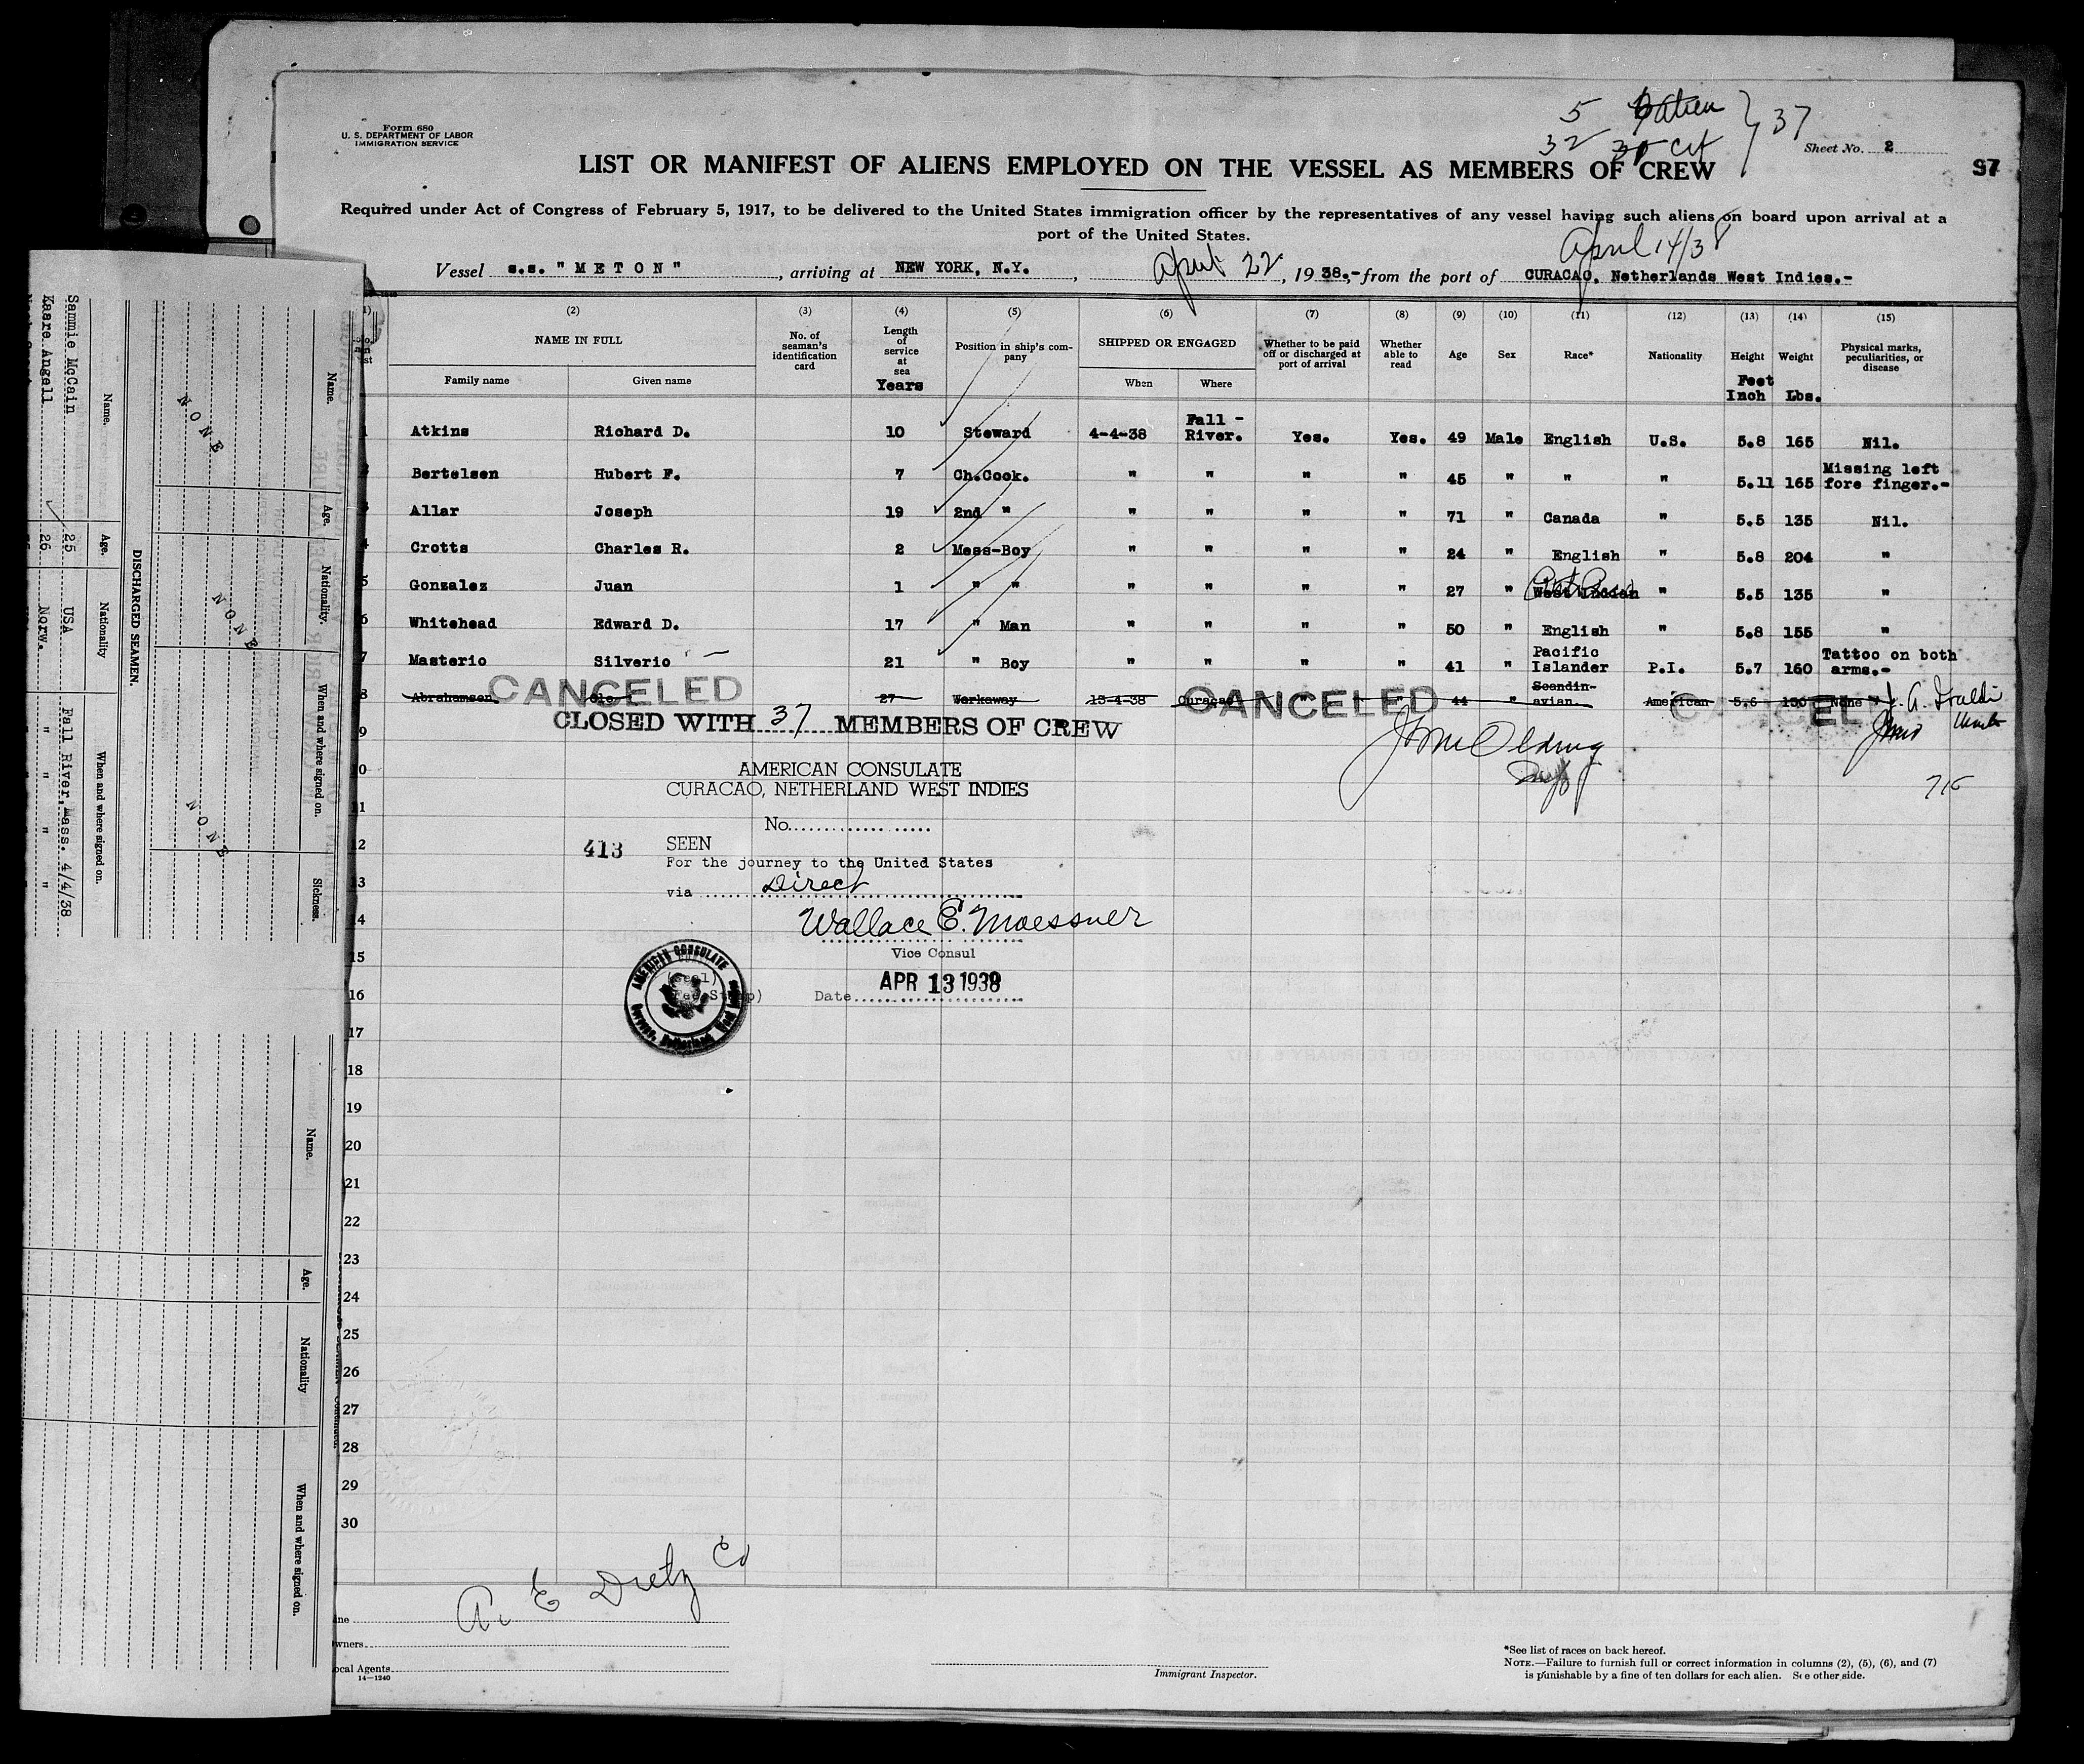 Form 680
U. S. DEPARTMENT OF LABOR
IMMIGRATION SERVICE
5
32 30 Cit } 37
Sheet No. 2
97
LIST OR MANIFEST OF ALIENS EMPLOYED ON THE VESSEL AS MEMBERS OF CREW
Required under Act of Congress of February 5, 1917, to be delivered to the United States immigration officer by the representatives of any vessel having such aliens on board upon arrival at a
port of the United States.
April 14/38
Vessel s.s. "METON", arriving at NEW YORK, N.Y., April 22, 1938,- from the port of CURACAO, Netherlands West Indies.-
(2) (3) (4) (5) (6) (7) (8) (9) (10) (11) (12) (13) (14) (15)
NAME IN FULL No. of seaman's identification card Length of service at sea Years Position in ship's company SHIPPED OR ENGAGED Whether to be paid off or discharged at port of arrival Whether able to read Age Sex Race* Nationality Height Feet Inch Weight Lbs. Physical marks, peculiarities, or disease
Family name Given name When Where
1 Atkins Richard D. 10 Steward 4-4-38 Fall - River. Yes. Yes. 49 Male English U.S. 5.8 165 Nil.
2 Bertelsen Hubert F. 7 Ch.Cook. " " " " 45 " " " 5.11 165 Missing left fore finger.-
3 Allar Joseph 19 2nd " " " " " 71 " Canada " 5.5 135 Nil.
4 Crotts Charles R. 2 Mess-Boy " " " " 24 " English " 5.8 204 "
5 Gonzalez Juan 1 " " " " " " 27 " West Indian " 5.5 135 "
6 Whitehead Edward D. 17 " Man " " " " 50 " English " 5.8 155 "
7 Masterio Silverio 21 " Boy " " " " 41 " Pacific Islander P.I. 5.7 160 Tattoo on both arms.-
8 Abrahamsen 27 Workaway 13-4-38 Curacao " " 44 " Scandin-avian. American 5.6 150 None
CANCELED CANCELED
CLOSED WITH 37 MEMBERS OF CREW
9
10 AMERICAN CONSULATE
CURACAO, NETHERLAND WEST INDIES
715
11
No.
12 413 SEEN
For the journey to the United States
13 via Direct
14 Wallace E. Moessner
15 Vice Consul
AMERICAN CONSULATE
Curacao, Netherland West Indies
16 Date APR 13 1938
17
18
19
20
21
22
23
24
25
26
27
28
29
30
A. E. Dietz
wners
ocal Agents
14-1240
Immigrant Inspector.
*See list of races on back hereof.
NOTE.—Failure to furnish full or correct information in columns (2), (5), (6), and (7)
is punishable by a fine of ten dollars for each alien. See other side.
Name. Age. Nationality. When and where signed on. Sickness.
NONE NONE NONE
DISCHARGED SEAMEN.
Name. Age. Nationality When and where signed on.
Sammie McCain 25 USA Fall River, Mass. 4/4/38
Kaare Angell 26 Norw. " " " "
Name. Age. Nationality When and where signed on.